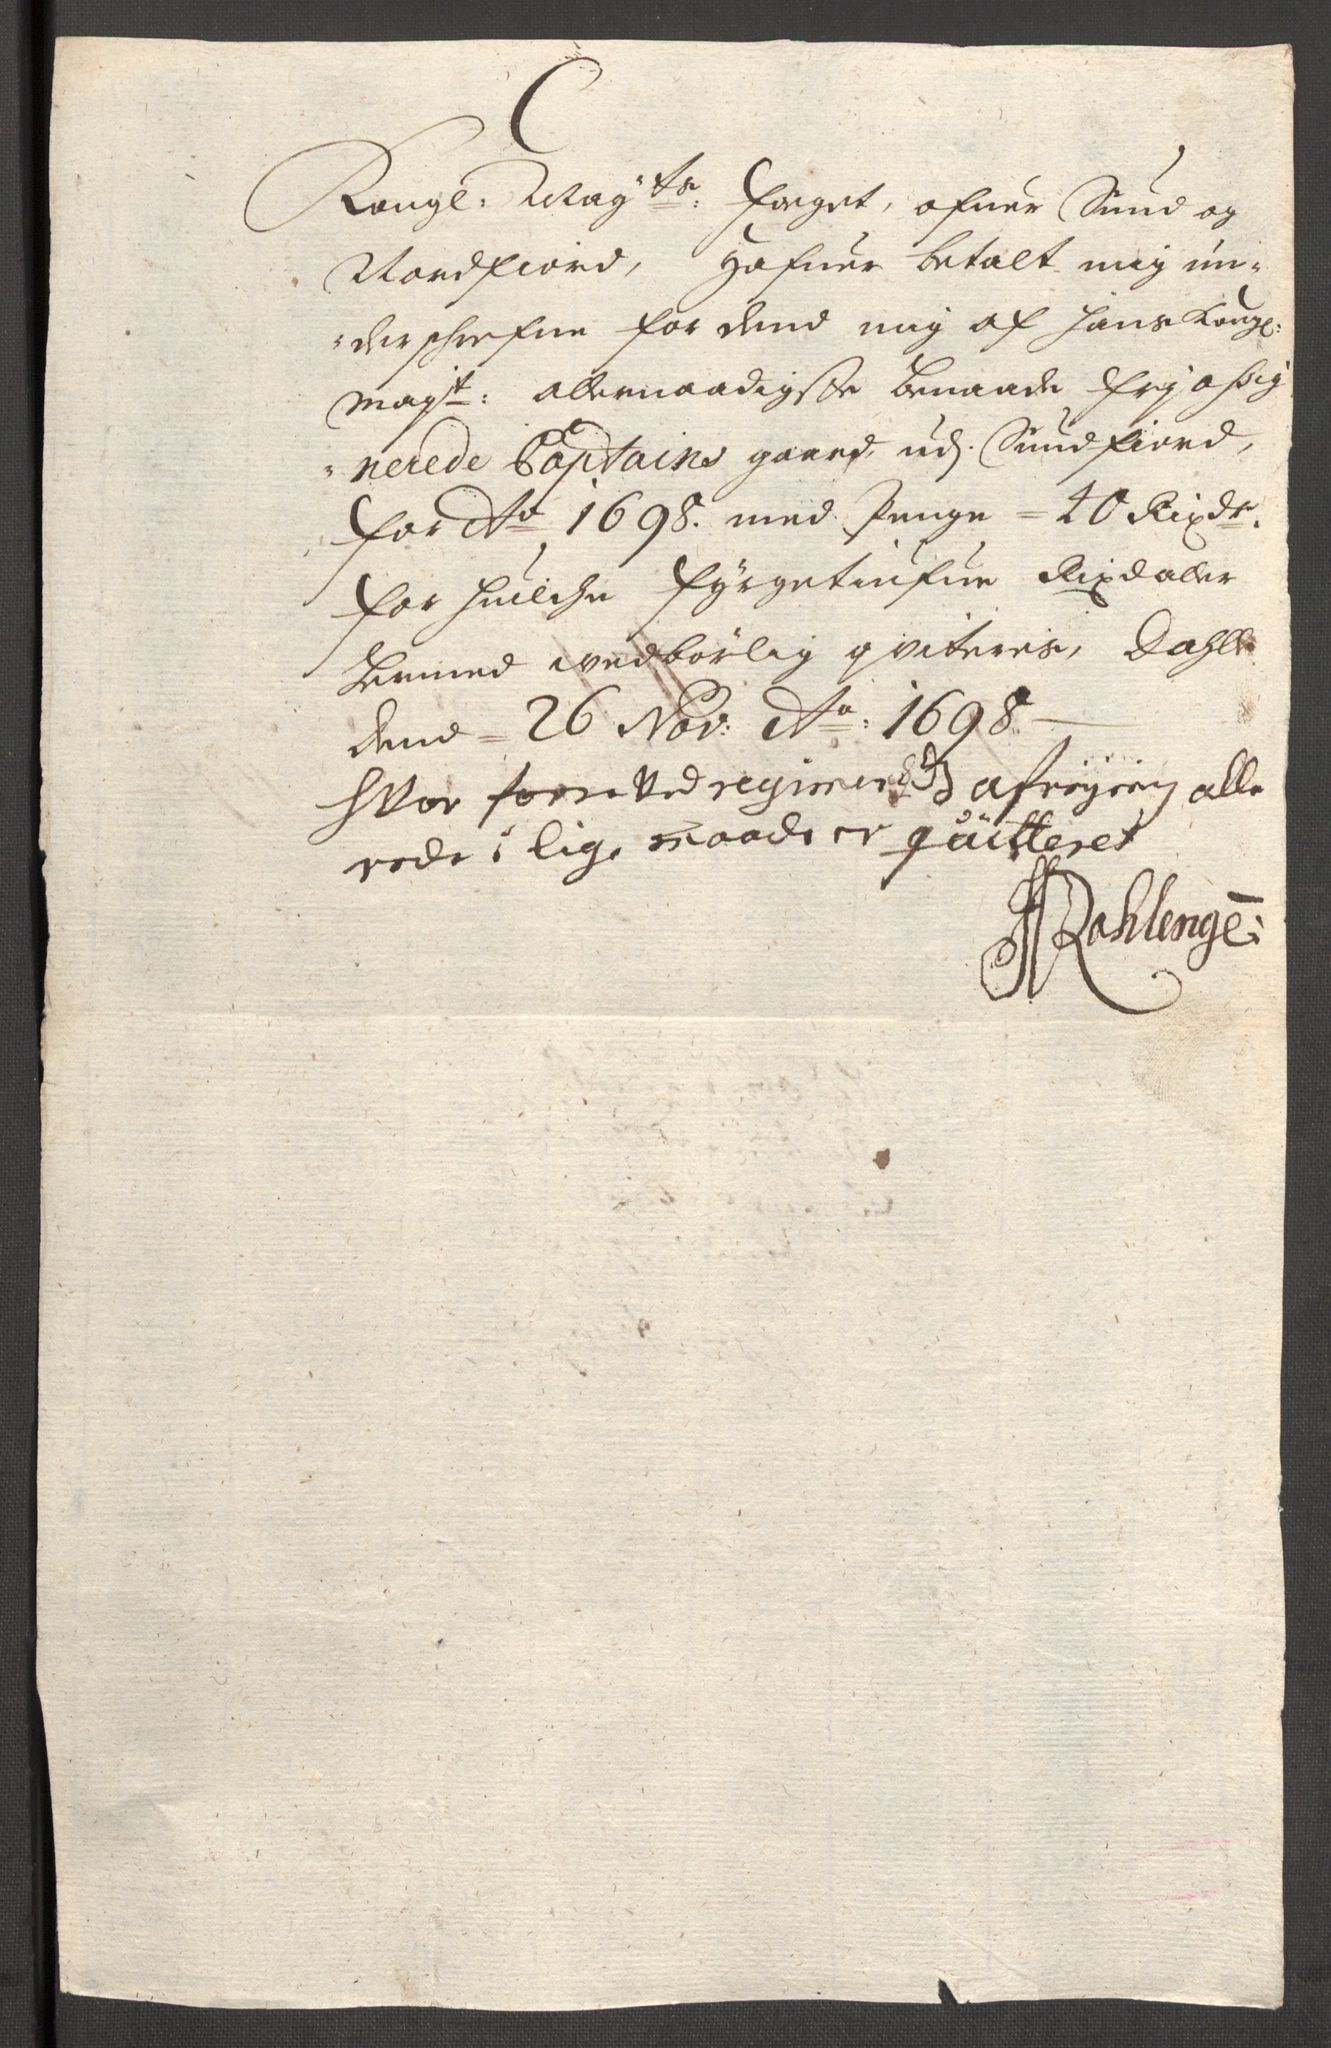 C
Kongl: May:ts: foeget, ofuer Sund og
Nordfiord, Hafuer betalt mig un-
-derschrefne for dend mig af Hans Kongl:
Mayt: allernaadigste benaade frj assig
-nerede Captains gaard, udj Sundfiord,
for Ao 1698. med Penge = 40 Rixdr.
for huilche fyrgetiufue Rixdaller
hermed vedbörlig qviteris, Dahle
dend = 26 Nov: Ao: 1698
hvor forre ved regimend afreigning alle
rede i lige maade er quitteret